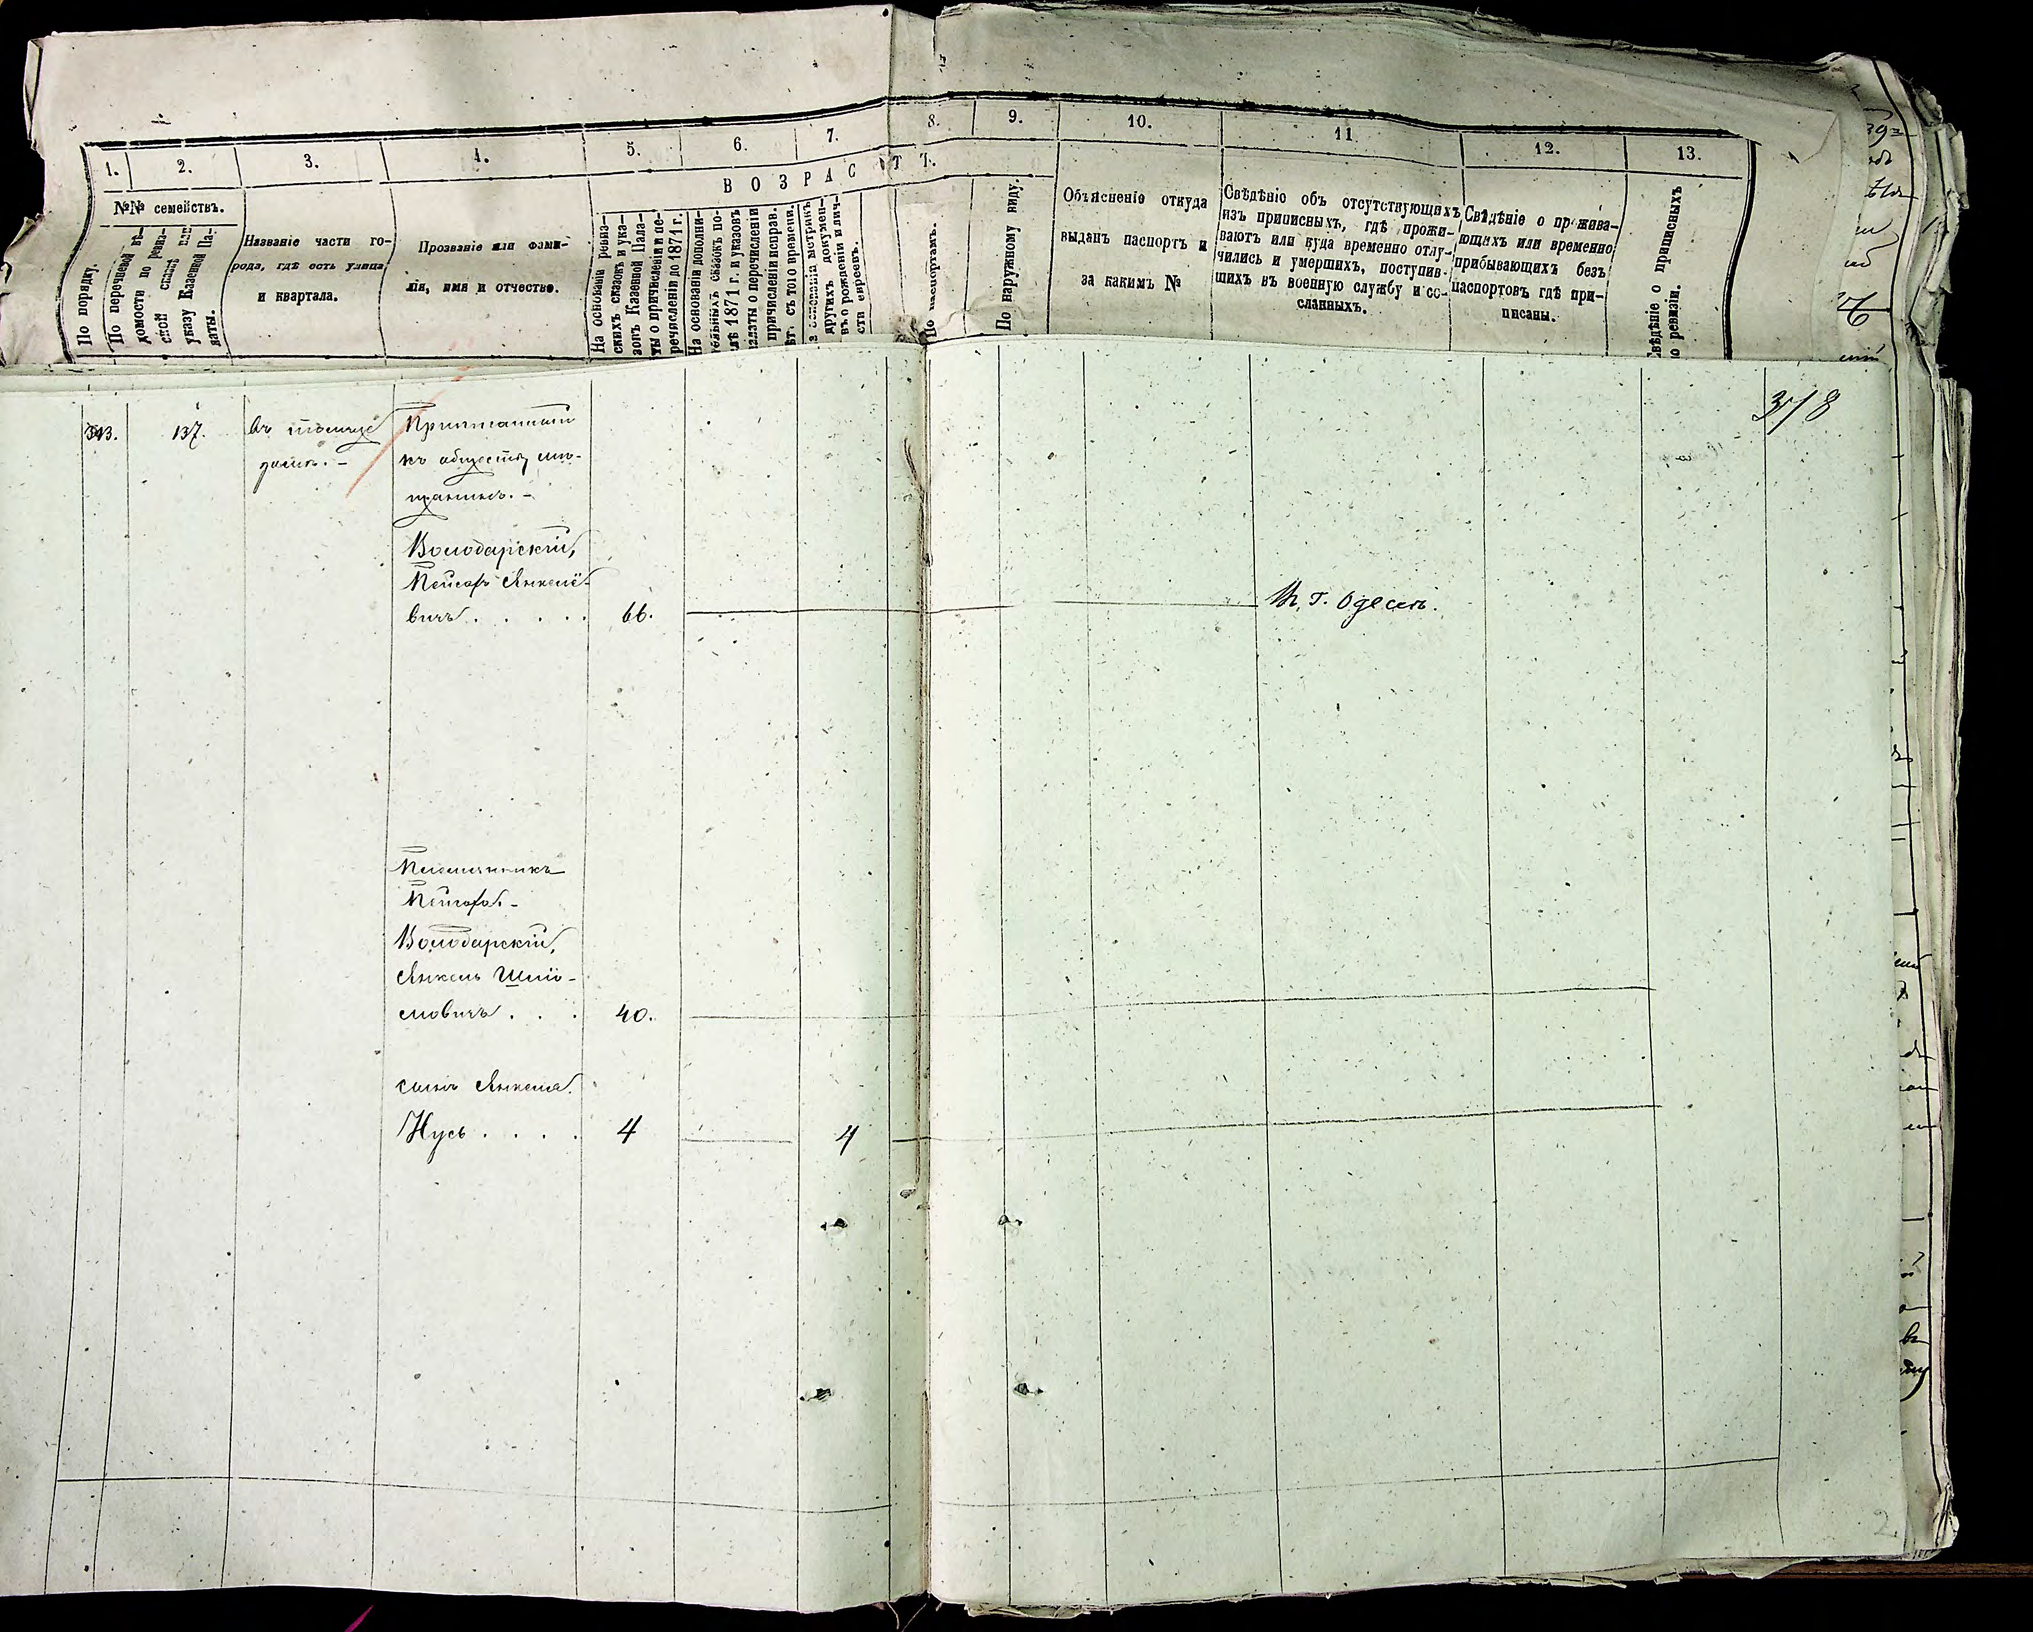 1. 2. 3. 4. 5. 6. 7. 8. 9. 10. 11 12. 13.
ВОЗРАСТЪ.
№№ семействъ.
По порядку.
По перечневой вѣ-
домости по ревиз-
ской сказкѣ или
указу Казенной Па-
латы.
Названіе части го-
рода, гдѣ есть улица
и квартала.
Прозваніе или фами-
лія, имя и отчество.
На основаніи ревиз-
скихъ сказокъ и ука-
зовъ Казенной Пала-
ты о причисленіи и пе-
речисленіи до 1871 г.
На основаніи дополни-
тельныхъ сказокъ по-
слѣ 1871 г. и указовъ
палаты о перечисленіи
причисленіи исправ.
лѣт. съ того времени.
На основаніи метрикъ
другихъ докумен-
въ о рожденіи и лич-
сти евреевъ.
По паспортамъ.
По наружному виду.
Объясненіе откуда
выданъ паспортъ и
за какимъ №
Свѣдѣніе объ отсутствующихъ
изъ приписныхъ, гдѣ прожи-
ваютъ или куда временно отлу-
чились и умершихъ, поступив-
шихъ въ военную службу и со-
сланныхъ.
Свѣдѣніе о прожива-
ющихъ или временно
прибывающихъ безъ
паспортовъ гдѣ при-
писаны.
Свѣдѣніе о приписныхъ
по ревизіи.
318
313. 137.
Приписанный
къ обществу мѣ-
щанинъ. –
Володарскій,
Пейсахъ Янкеле-
вичъ . . . . . 66.
Въ г. Одессѣ.
Племянникъ
Пейсаха. –
Володарскій,
Янкель Шліо-
мовичъ . . . 40.
сынъ Янкеля.
Нусь . . . . 4 4
2